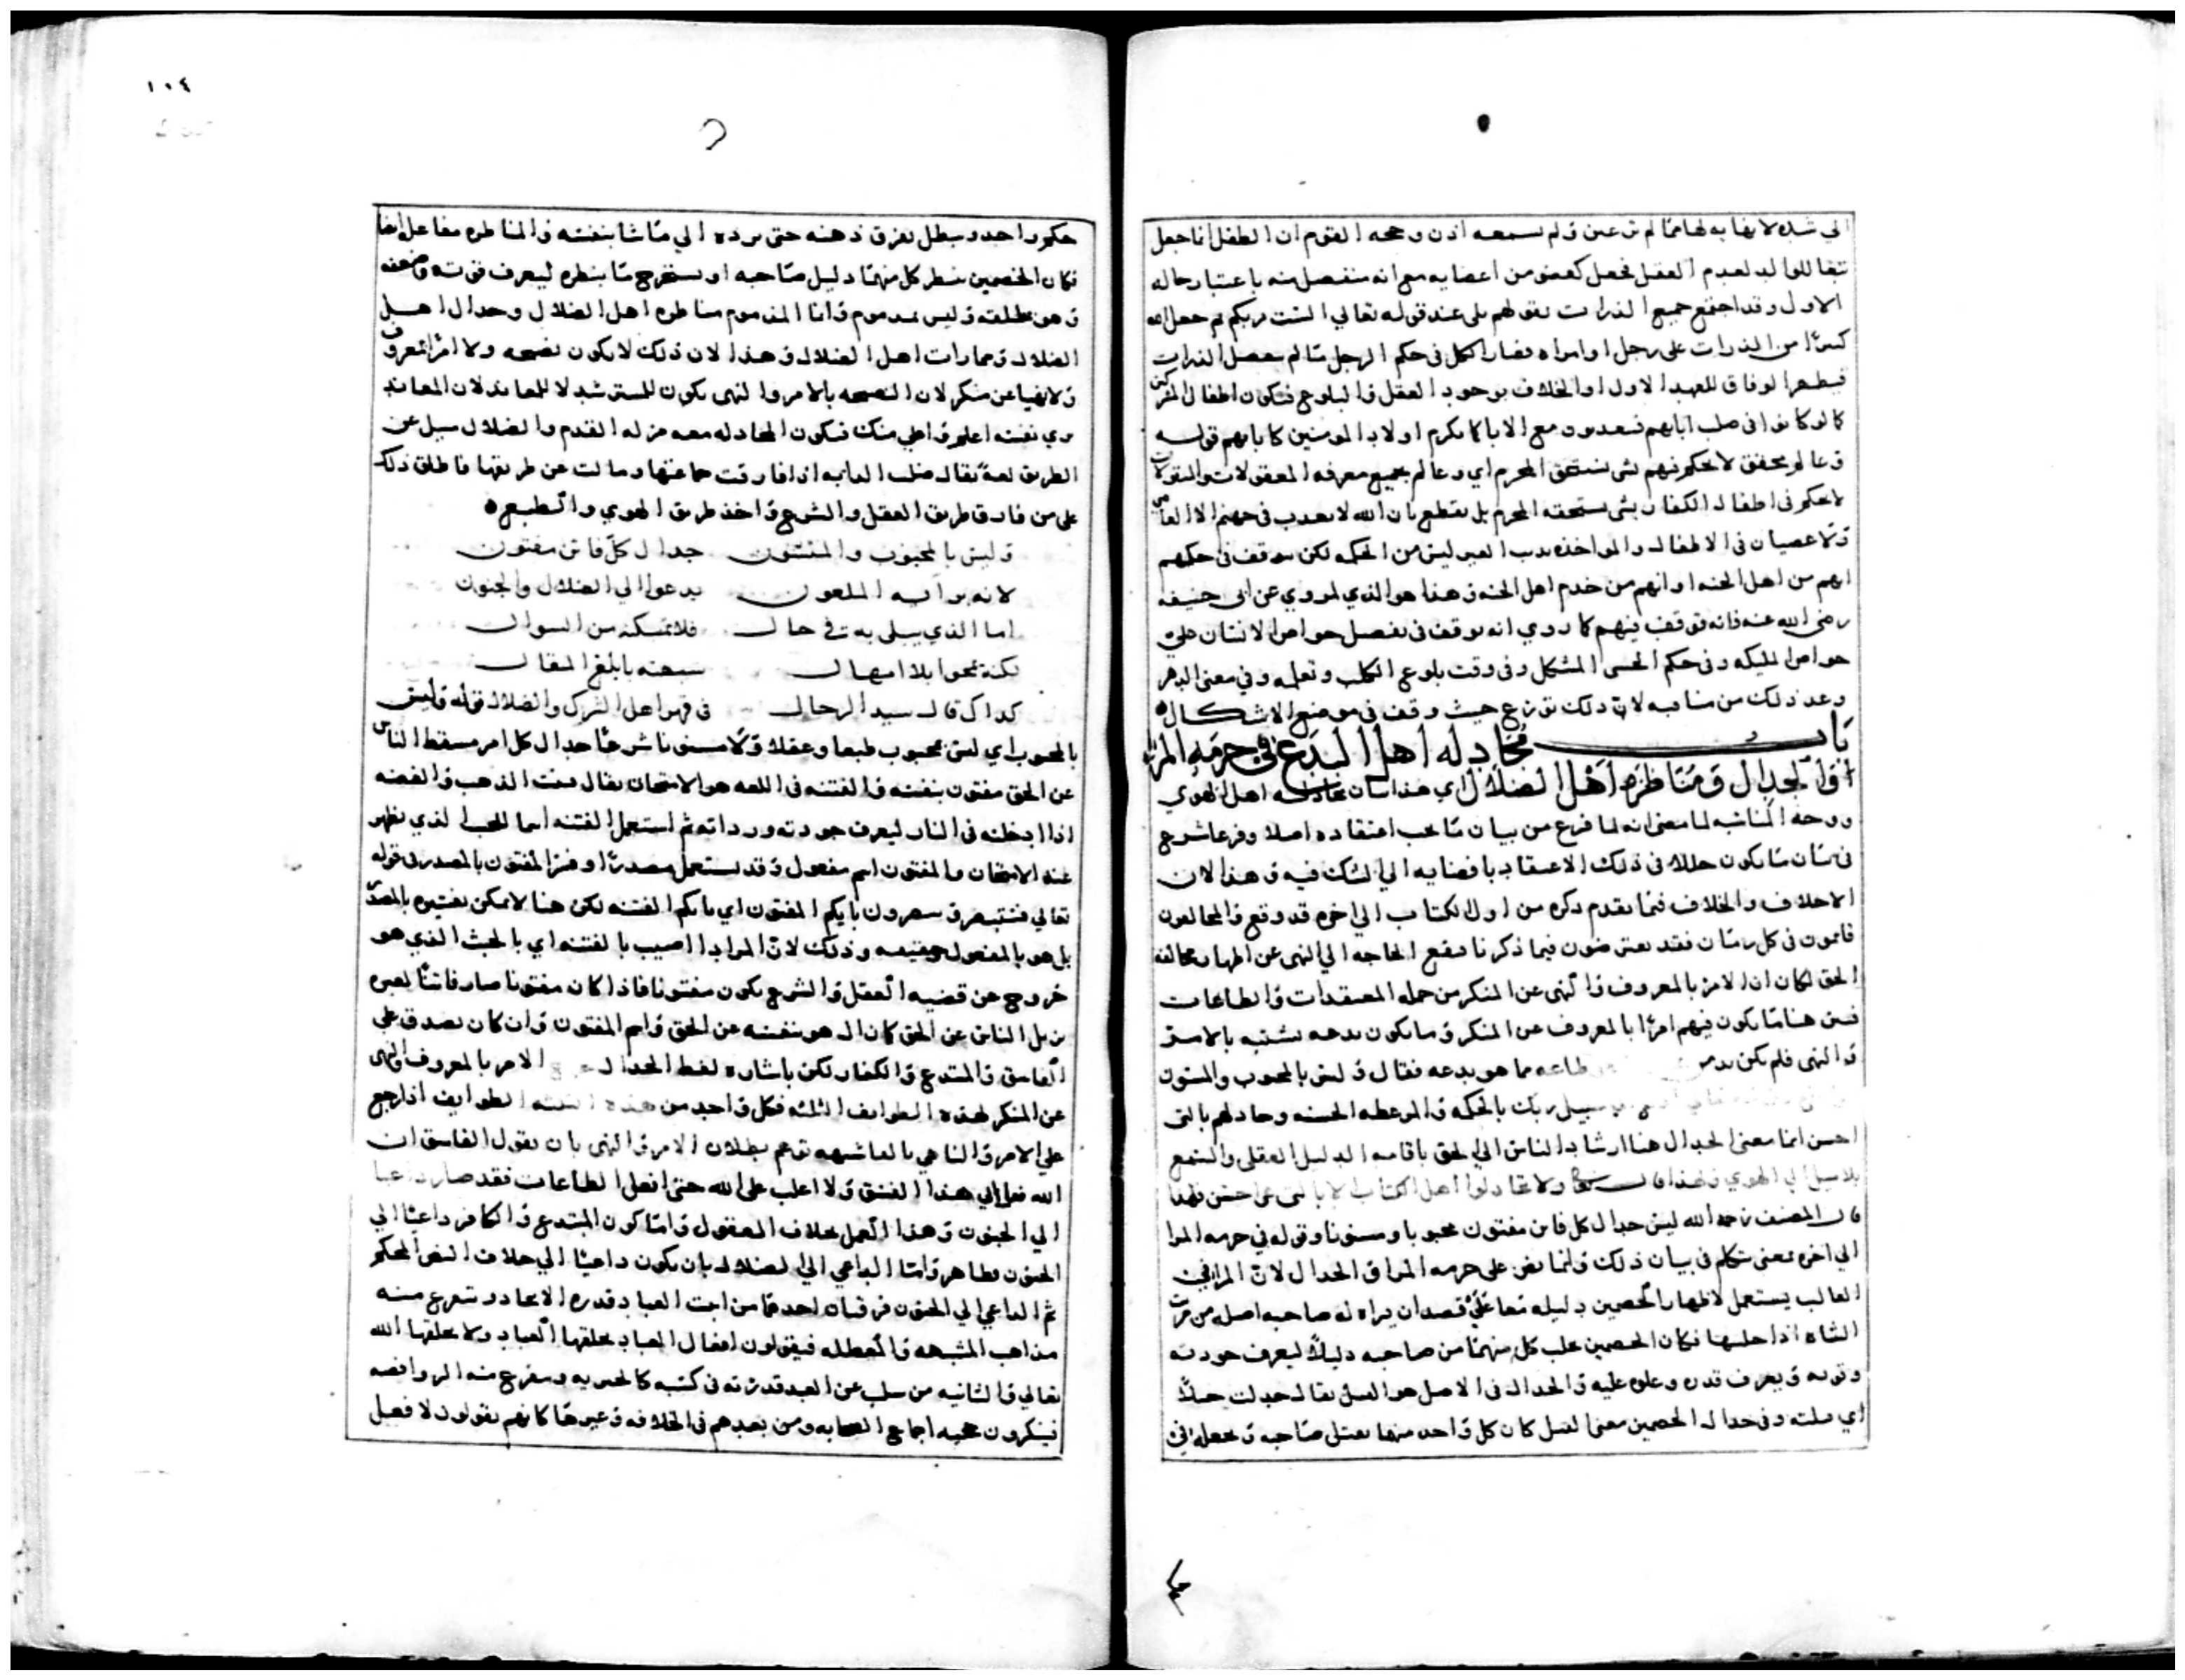 الي شده لا نهايه لها مما لم تر عين ولم يسمعه اذن وحجه القوم ان الطفل انما جعل
تبعا للوالد لعدم العقل فجعل كعضو من اعضايه مع انه منفصل منه باعتبار حاله
الاول وقد اجتمع جميع الذرات بقولهم بلى عند قوله تعالي الست بربكم ثم جعل الله
كثيرا من الذرات على رجل او امراه فصار الكل في حكم الرجل ما لم ينفصل الذرات
فيظهر الوفاق للعهد الاول او الخلاف بوجود العقل والبلوغ فتكون اطفال المشركين
كما لو كانوا في صلب ابايهم فيعذبون مع الابا كما يكرم اولاد المومنين كابايهم قوله
وعالم محقق لا يحكم فيهم بشي يستحق المجرم اي وعالم بجميع معرفه المعقولات والمنقولات
لا يحكم في اطفال الكفار بشي يستحقه المجرم بل يقطع بان الله لا يعذب في جهنم الا العاصي
ولا عصيان في الاطفال والمواخذه بذنب الغير ليس من الحكمه لكن يتوقف في حكمهم
انهم من اهل الجنه او انهم من خدم اهل الجنه وهذا هو الذي المروي عن ابي حنيفه
رضي الله عنه فانه توقف فيهم كما روي انه توقف في تفضيل خواص الانسان على
خواص المليكه وفي حكم الخنثى المشكل وفي وقت بلوغ الكلب وتعلمه وفي معنى الدهر
وعد ذلك من مناقبه لان ذلك تورع حيث وقف في موضع الاشكال
باب مجادله اهل البدع في حرمه المرا
اقول الجدال ومناظره اهل الضلال اي هذا بيان مجادله اهل الهوي
ووجه المناسبه لما معنى انه لما فرغ من بيان ما يجب اعتقاده اصلا وفرعا شرع
في بيان ما يكون خللا في ذلك الاعتقاد بافضايه الي الشك فيه وهذا لان
الاختلاف والخلاف فيما تقدم ذكره من اول الكتاب الي اخره قد وقع والمخالفون
قايمون في كل زمان فقد يعترضون فيما ذكرنا فيقع الحاجه الي النهي عن اظهار مخالفه
الحق لكان ان الامر بالمعروف والنهي عن المنكر من جمله المعتقدات والطاعات
فبين هنا ما يكون فيهم امرا بالمعروف عن المنكر وما يكون بدعه تشتبه بالامر
والنهي فلم يكن طاعه مما هو بدعه فقال وليس بالمحبوب والمسنون
سبيل ربك بالحكمه والموعظه الحسنه وجادلهم بالتي
احسن انما معنى الجدال هنا ارشاد الناس الي الحق باقامه الدليل العقلي والسمع
بلا ميل الي الهوي ولهذا قال ولا تجادلوا اهل الكتاب الا بالتي هي احسن فلهذا
قال المصنف رحمه الله ليس جدال كل فاتن مفتون محبوبا ومسنونا وقوله في حرمه المرا
الي اخره بمعنى يتكلم في بيان ذلك وانما نص على حرمه المرا في الجدال لان المرا في
الغالب يستعمل لاظهار الخصمين دليله قصدا ان يراه له صاحبه اصله من مريت
الشاه اذا حلبها فكان الخصمين يحلب كل منهما من صاحبه دليلا ليعرف جودته
وقوته ويعرف قدره وعلوه عليه والجدال في الاصل هو الفتل يقال جدلت حبلا
اي فتلته وفي جدال الخصمين معنى الفتل كان كل واحد منهما يفتل صاحبه ويجعله في
١٠٤
حكم واحد ويبطل تفرق ذهنه حتى يرده الي ما شا بنفسه والمناظره مفاعله ايضا
فكان الخصمين ينظر كل منهما دليل صاحبه او يستخرج ما ينظره ليعرف قوته وضعفه
وهو مطلقه وليس بمذموم وانما المذموم مناظره اهل الضلال وجدال اهل
الضلال وممارات اهل الضلال وهذا لان ذلك لا يكون نصيحه ولا امرا بالمعروف
ولا نهيا عن منكر لان النصيحه بالامر والنهي يكون للمسترشد لا للمعاند لان المعاند
يري نفسه اعلم واعلي منك فيكون المجادله معه مزله القدم والضلال ميل عن
الطريق لغه يقال ضلت الدابه اذا فارقت جماعتها ومالت عن طريقها فاطلق ذلك
على من فارق طريق العقل والشرع واخذ طريق الهوي والطبع
وليس بالمحبوب والمسنون جدال كل فاتن مفتون
لانه برايه الملعون يدعوا الي الضلال والجنون
اما الذي يبلى به في حال فلا تمكنه من السوال
لكنه بمحوا بلا امهال سبهته بابلغ المقال
كذاك قال سيد الرجال في قهر اهل الشرك والضلال قوله وليس
بالمحبوب اي ليس بمحبوب طبعا وعقلا ولا مسنونا شرعا جدال كل امر مسقط الناس
عن الحق مفتون بنفسه والفتنه في اللغه هو الامتحان يقال فتنت الذهب والفضه
اذا ادخلته في النار ليعرف جودته ورداته ثم استعمل الفتنه اسما للخبث الذي يظهر
عند الامتحان والمفتون اسم مفعول وقد يستعمل مصدرا وفسر المفتون بالمصدر في قوله
تعالي فستبصر ويبصرون بايكم المفتون اي بايكم الفتنه لكن هنا لا يمكن تفسيره بالمصدر
بل هو بالمفعول حقيقه وذلك لان المراد اصيب بالفتنه اي بالخبث الذي هو
خروج عن قضيه العقل والشرع يكون مفتونا فاذا كان مفتونا صار فاتنا لغيره
يزيل الناس عن الحق كما زال هو بنفسه عن الحق واسم المفتون وان كان يصدق على
الفاسق والمبتدع والكفار لكن باشاره لفظ الجدال الامر بالمعروف والنهي
عن المنكر لهذه الطوايف الثلثه فكل واحد من هذه الثلثه الطوايف اذا رجع
على الامر والناهي بالقا شبهه توهم بطلان الامر والنهي بان يقول الفاسق ان
الله فعل بي هذا الفسق ولا اغلب على الله حتى افعل الطاعات فقد صار داعيا
الي الجنون وهذا العمل بخلاف المعقول واما كون المبتدع والكافر داعيا الي
الجنون فظاهر واما الداعي الي الضلال بان يكون داعيا الي خلاف النص المحكم
ثم الداعي الي الجنون فرقتان احدهما من اثبت العباد قدره الايجاد ويتفرع منه
مذاهب المشبهه والمعطله فيقولون افعال العباد يخلقها العباد ولا يخلقها الله
تعالي والثانيه من سلب عن العبد قدرته في كسبه كالجبريه ويتفرع منه الروافضه
فينكرون حجيه اجماع الصحابه ومن بعدهم في الخلافه وغيرها كانهم يقولون لا فعل